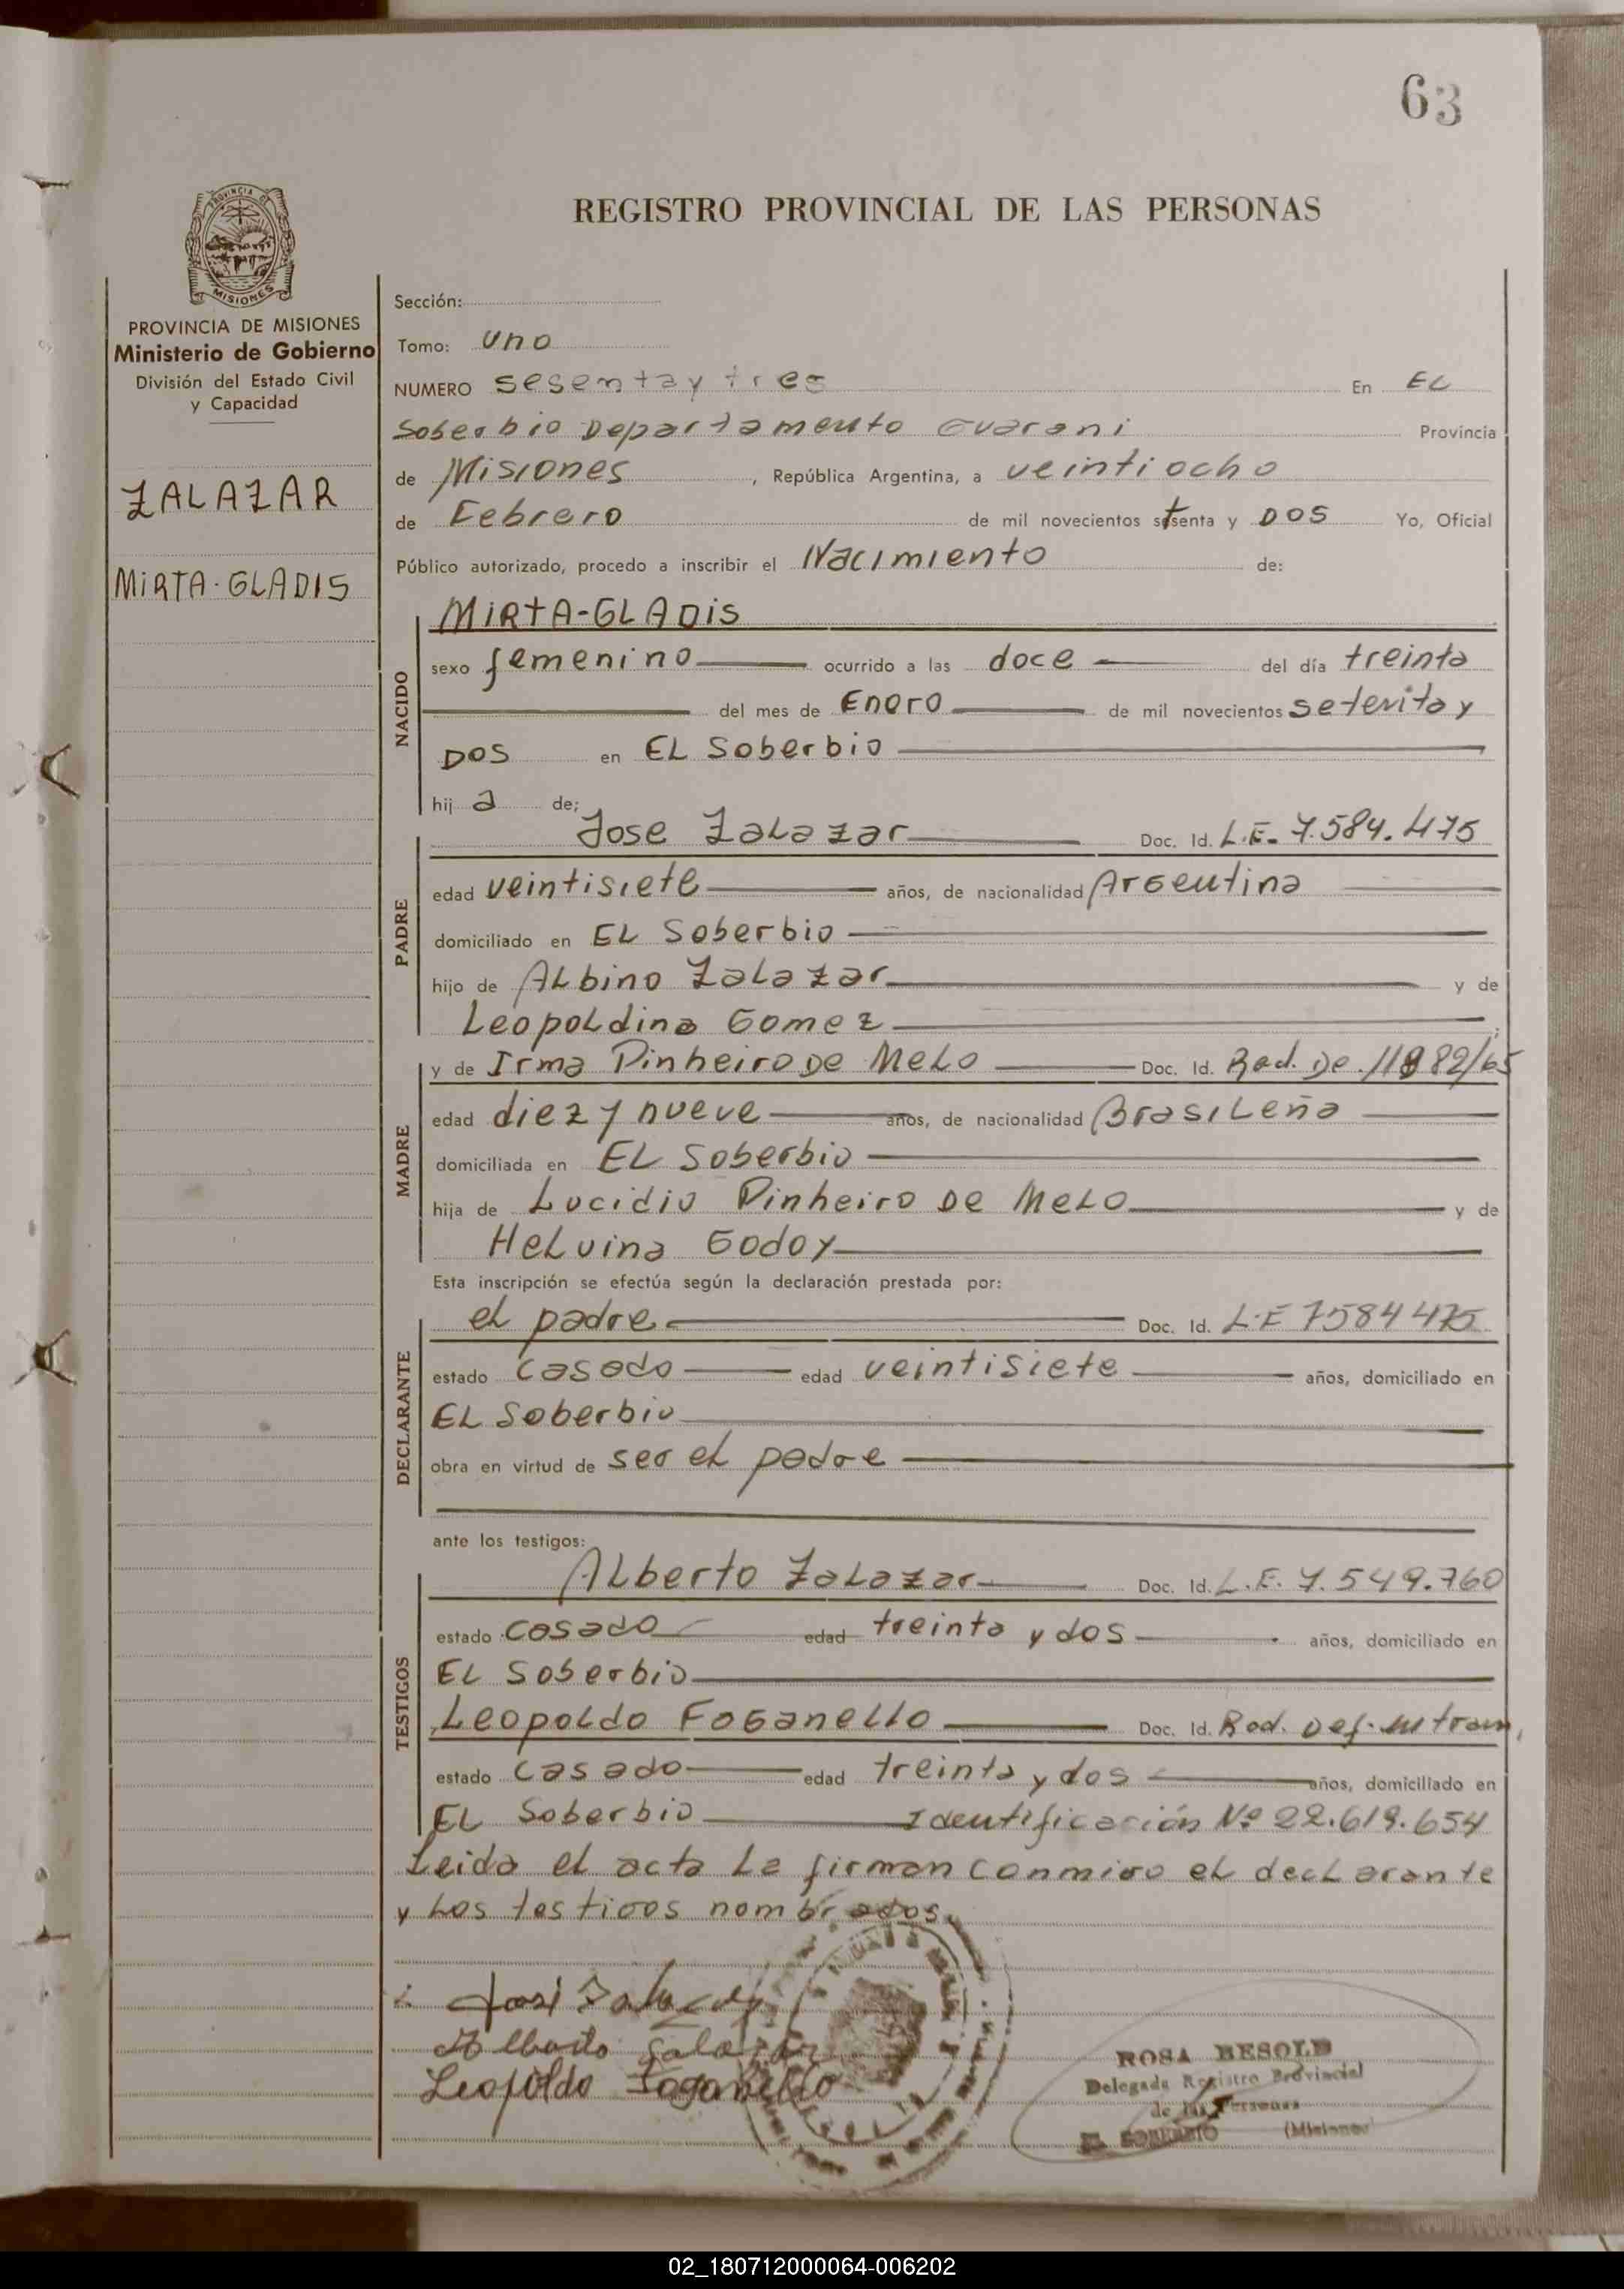 63
REGISTRO PROVINCIAL DE LAS PERSONAS
PROVINCIA DE MISIONES
PROVINCIA DE MISIONES
Ministerio de Gobierno
División del Estado Civil
y Capacidad
ZALAZAR
MIRTA-GLADIS
Sección:
Tomo: uno
NUMERO sesenta y tres En EL
Soberbio Departamento Guarani Provincia
de Misiones, República Argentina, a veintiocho
de Febrero de mil novecientos setenta y DOS Yo, Oficial
Público autorizado, procedo a inscribir el Nacimiento de:
NACIDO
MIRTA-GLADIS
sexo femenino ocurrido a las doce del día treinta
del mes de Enero de mil novecientos setenta y
DOS en EL Soberbio
hija de:
PADRE
Jose Zalazar Doc. Id. L.E. 7.584.475
edad veintisiete años, de nacionalidad Argentina
domiciliado en EL Soberbio
hijo de Albino Zalazar y de
Leopoldina Gomez
MADRE
y de Irma Pinheiro De Melo Doc. Id. Rad. De. 11982/65
edad diez y nueve años, de nacionalidad Brasileña
domiciliada en EL Soberbio
hija de Lucidio Pinheiro De Melo y de
Helvina Godoy
Esta inscripción se efectúa según la declaración prestada por:
DECLARANTE
el padre Doc. Id. L.E 7584475
estado casado edad veintisiete años, domiciliado en
EL Soberbio
obra en virtud de ser el padre
ante los testigos:
TESTIGOS
Alberto Zalazar Doc. Id. L.E. 7.549.760
estado casado edad treinta y dos años, domiciliado en
EL Soberbio
Leopoldo Foganello Doc. Id. Rad. Def. en tram.
estado casado edad treinta y dos años, domiciliado en
EL Soberbio Identificación Nº 22.619.654
Leida el acta la firman conmigo el declarante
y los testigos nombrados.
José Zalazar
Alberto Salazar
Leopoldo Foganello
ROSA BESOLD
Delegada Registro Provincial
de las Personas
EL SOBERBIO (Misiones)
02_180712000064-006202